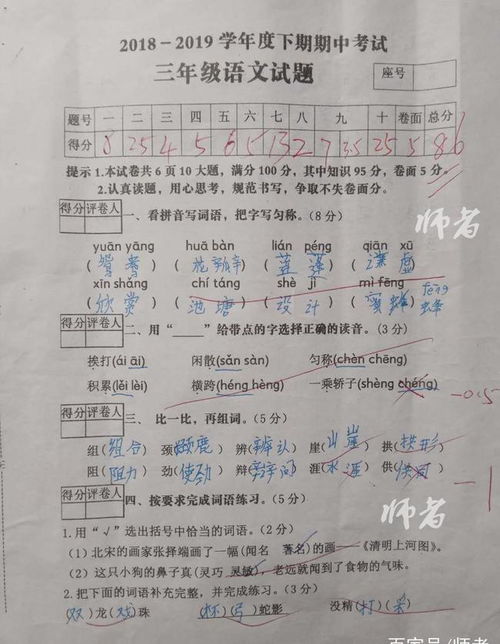 2018－2019学年度下期期中考试
三年级语文试题
座号
题号 一 二 三 四 五 六 七 八 九 十 卷面 总分
得分 8 25 4 5 6 5 13 2 7 3.5 25 5 86
提示 1.本试卷共6页10大题，满分100分，其中知识95分，卷面5分。
2.认真读题，用心思考，规范书写，争取不失卷面分。
得分 评卷人
一、看拼音写词语，把字写匀称。（8分）
师者
yuān yāng huā bàn lián péng qiān xū
(鸳鸯) (花瓣) (莲蓬) (谦虚)
xīn shǎng chí táng shè jì mì fēng
(欣赏) (池塘) (设计) (蜜蜂)
fēng
得分 评卷人
二、用“____”给带点的字选择正确的读音。（3分）
挨打(ái āi) 闲散(sǎn sàn) 匀称(chèn chēng)
积累(lěi lèi) 横跨(héng hèng) 一乘轿子(shèng chéng)
-0.5
得分 评卷人
三、比一比，再组词。（5分）
组(组合) 颈(颈鹿) 辨(辨认) 崖(山崖) 拱(拱形)
阻(阻力) 劲(使劲) 辩(辩问) 涯(水涯) 供()
-1
得分 评卷人
四、按要求完成词语练习。（5分）
师者
1.用“√”选出括号中恰当的词语。（2分）
（1）北宋的画家张择端画了一幅(闻名 著名)的画——《清明上河图》。
（2）这只小狗的鼻子真(灵巧 灵敏)，老远就闻到了食物的气味。
2.把下面的词语补充完整，并完成练习。（3分）
(双)龙(戏)珠 (杯)(弓)蛇影 没精(打)(采)
百家号/师者